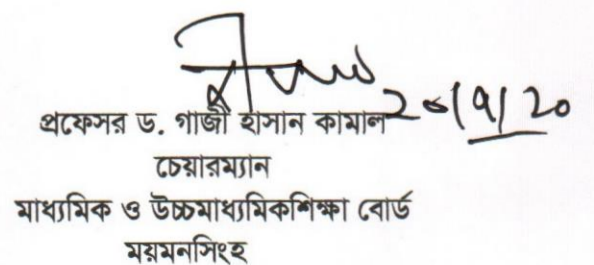 প্রফেসর ড. গাজী হাসান কামাল
চেয়ারম্যান
মাধ্যমিক ও উচ্চমাধ্যমিকশিক্ষা বোর্ড
ময়মনসিংহ